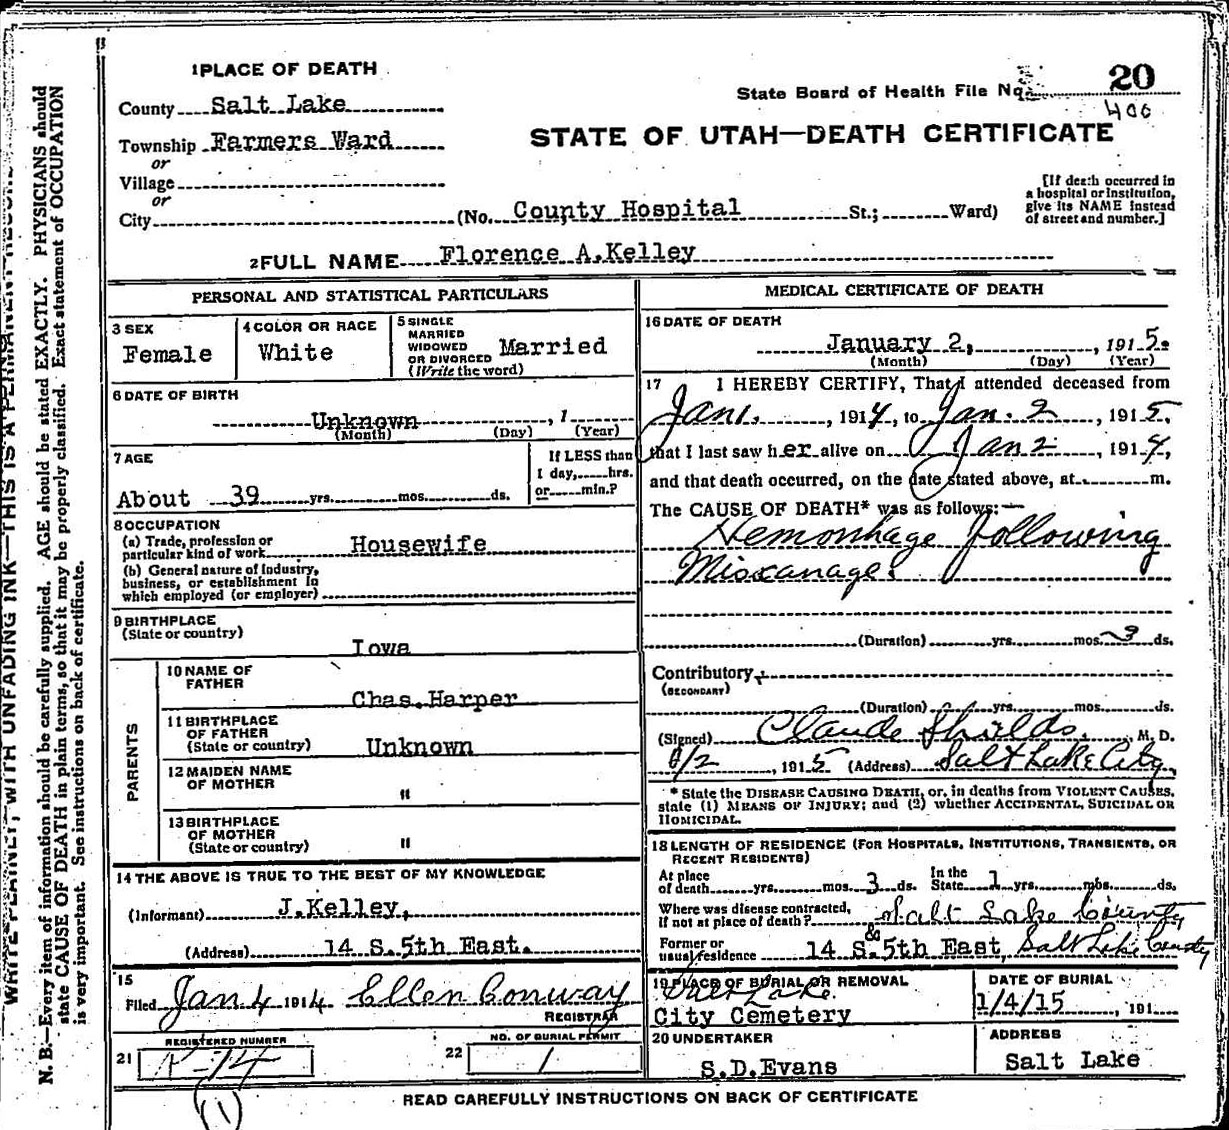 1 PLACE OF DEATH
County Salt Lake
Township Farmers Ward
or
Village
or
City (No. County Hospital St.; Ward)
State Board of Health File No. 20
400
STATE OF UTAH—DEATH CERTIFICATE
[If death occurred in
a hospital or institution,
give its NAME instead
of street and number.]
2 FULL NAME Florence A.Kelley
PERSONAL AND STATISTICAL PARTICULARS
3 SEX
Female
4 COLOR OR RACE
White
5 SINGLE
MARRIED
WIDOWED
OR DIVORCED
(Write the word)
Married
6 DATE OF BIRTH
Unknown , 1
(Month) (Day) (Year)
7 AGE
About 39 yrs. mos. ds.
If LESS than
1 day, hrs.
or min.?
8 OCCUPATION
(a) Trade, profession or
particular kind of work Housewife
(b) General nature of industry,
business, or establishment in
which employed (or employer)
9 BIRTHPLACE
(State or country)
Iowa
PARENTS
10 NAME OF
FATHER
Chas.Harper
11 BIRTHPLACE
OF FATHER
(State or country) Unknown
12 MAIDEN NAME
OF MOTHER
"
13 BIRTHPLACE
OF MOTHER
(State or country) "
14 THE ABOVE IS TRUE TO THE BEST OF MY KNOWLEDGE
(Informant) J.Kelley,
(Address) 14 S.5th East.
15
Filed Jan 4 1914 Ellen Conway
REGISTRAR
21 REGISTERED NUMBER
22 NO. OF BURIAL PERMIT
1
(1)
MEDICAL CERTIFICATE OF DEATH
16 DATE OF DEATH
January 2, , 1915.
(Month) (Day) (Year)
17 I HEREBY CERTIFY, That I attended deceased from
Jan 1. , 1914, to Jan. 2 , 1915,
that I last saw her alive on Jan 2 , 1914,
and that death occurred, on the date stated above, at m.
The CAUSE OF DEATH* was as follows:—
Hemorrhage following
Miscarriage.
(Duration) yrs. mos. 3 ds.
Contributory
(SECONDARY)
(Duration) yrs. mos. ds.
(Signed) Claude Shields , M. D.
1/2 , 1915 (Address) Salt Lake City
* State the DISEASE CAUSING DEATH, or, in deaths from VIOLENT CAUSES,
state (1) MEANS OF INJURY; and (2) whether ACCIDENTAL, SUICIDAL OR
HOMICIDAL.
18 LENGTH OF RESIDENCE (FOR HOSPITALS, INSTITUTIONS, TRANSIENTS, OR
RECENT RESIDENTS)
At place
of death yrs. mos. 3 ds.
In the
State 1 yrs. mos. ds.
Where was disease contracted,
if not at place of death? Salt Lake County
Former or
usual residence 14 So 5th East, Salt Lake County
19 PLACE OF BURIAL OR REMOVAL
Salt Lake
City Cemetery
DATE OF BURIAL
1/4/15 , 191
20 UNDERTAKER
S.D.Evans
ADDRESS
Salt Lake
READ CAREFULLY INSTRUCTIONS ON BACK OF CERTIFICATE
WRITE PLAINLY, WITH UNFADING INK—THIS IS A PERMANENT RECORD
N. B.—Every item of information should be carefully supplied. AGE should be stated EXACTLY. PHYSICIANS should
state CAUSE OF DEATH in plain terms, so that it may be properly classified. Exact statement of OCCUPATION
is very important. See instructions on back of certificate.